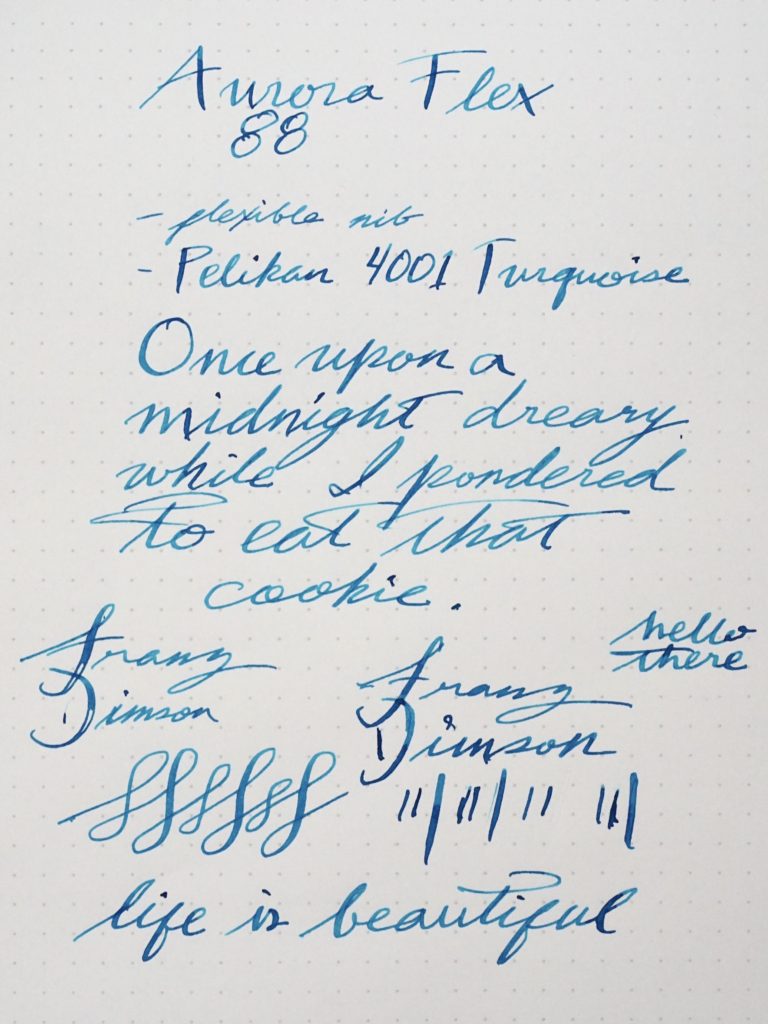 Aurora Flex
88
- flexible nib
- Pelikan 4001 Turquoise
Once upon a
midnight dreary
while I pondered
to eat that
cookie.
hello
there
Franz
Dimson
Franz
Dimson
life is beautiful